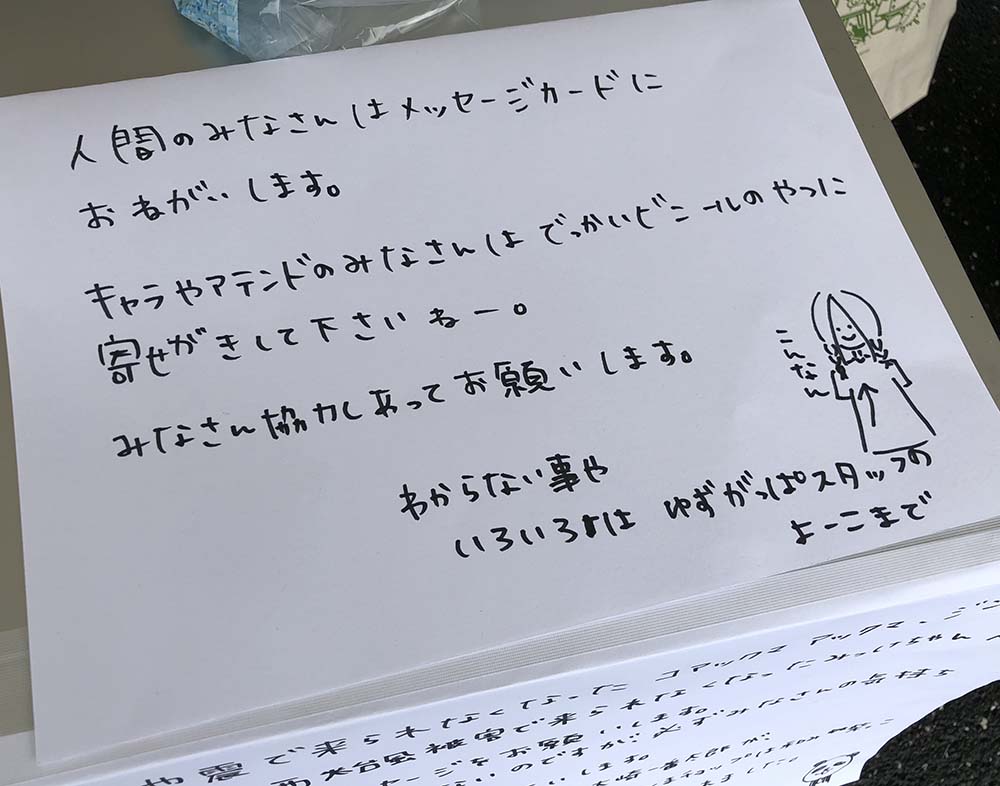 人間のみなさんはメッセージカードに
おねがいします。
キャラやアテンドのみなさんはでっかいビニールのやつに
寄せがきして下さいねー。
みなさん協力しあってお願いします。
こんなん
わからない事や
いろいろは ゆずがっぱスタッフの
よーこまで
震で来られなくなった コアックマ アックマ
台風被害で来られなくなったみっけちゃん
セージをお願いします。
のですが みなさんの気持ち
します。